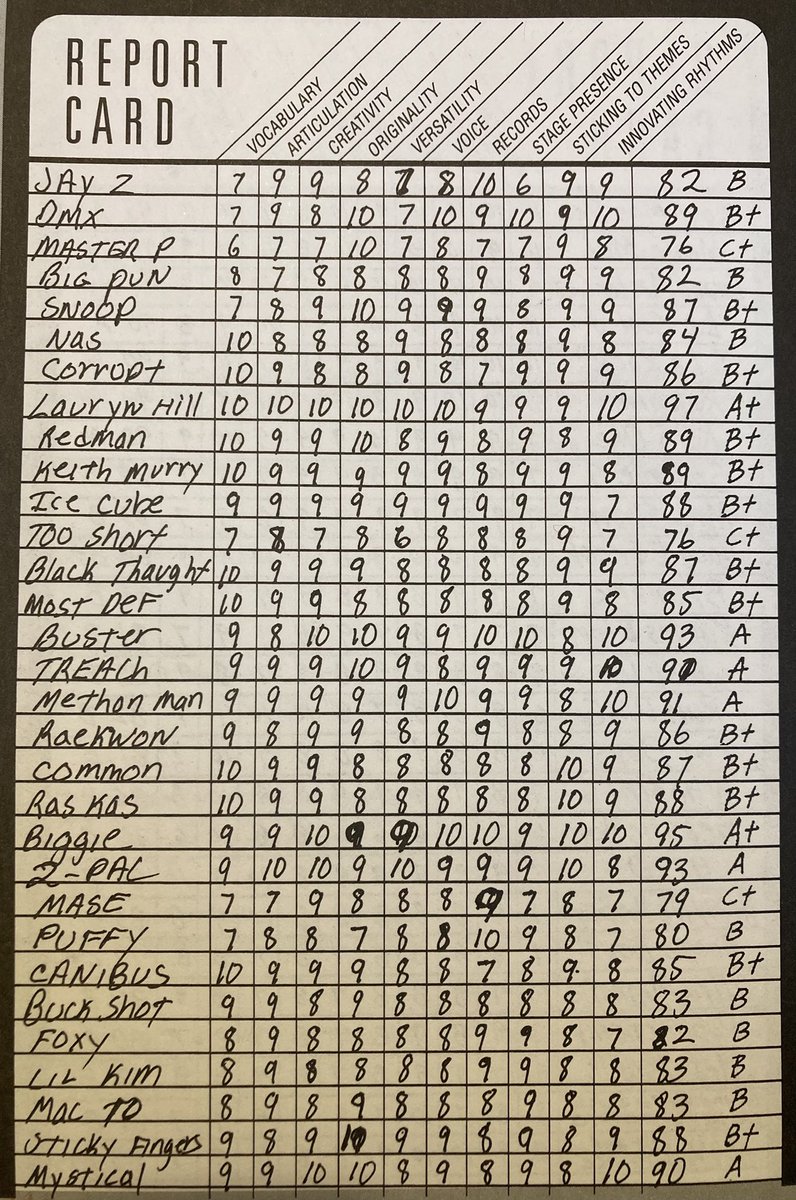 REPORT
CARD
VOCABULARY
ARTICULATION
CREATIVITY
ORIGINALITY
VERSATILITY
VOICE
RECORDS
STAGE PRESENCE
STICKING TO THEMES
INNOVATING RHYTHMS
JAY Z 7 9 9 8 7 8 10 6 9 9 82 B
DMX 7 9 8 10 7 10 9 10 9 10 89 B+
MASTER P 6 7 7 10 7 8 7 7 9 8 76 C+
BIG PUN 8 7 8 8 8 8 9 8 9 9 82 B
SNOOP 7 8 9 10 9 9 9 8 9 9 87 B+
NAS 10 8 8 8 9 8 8 8 9 8 84 B
Corrupt 10 9 8 8 9 8 7 9 9 9 86 B+
Lauryn Hill 10 10 10 10 10 10 9 9 9 10 97 A+
Redman 10 9 9 10 8 9 8 9 8 9 89 B+
Keith Murry 10 9 9 9 9 9 8 9 9 8 89 B+
Ice Cube 9 9 9 9 9 9 9 9 9 7 88 B+
TOO Short 7 8 7 8 6 8 8 8 9 7 76 C+
Black Thaught 10 9 9 9 8 8 8 8 9 9 87 B+
Most DeF 10 9 9 8 8 8 8 8 9 8 85 B+
Buster 9 8 10 10 9 9 10 10 8 10 93 A
TREACh 9 9 9 10 9 8 9 9 9 10 91 A
Methon man 9 9 9 9 9 10 9 9 8 10 91 A
Raekwon 9 8 9 9 8 8 9 8 8 9 86 B+
Common 10 9 9 8 8 8 8 8 10 9 87 B+
Ras Kas 10 9 9 8 8 8 8 8 10 9 88 B+
Biggie 9 9 10 9 9 10 10 9 10 10 95 A+
2-PAC 9 10 10 9 10 9 9 9 10 8 93 A
MASE 7 7 9 8 8 8 9 7 8 7 79 C+
PUFFY 7 8 8 7 8 8 10 9 8 7 80 B
CANIBUS 10 9 9 9 8 8 7 8 9 8 85 B+
Buck Shot 9 9 8 9 8 8 8 8 8 8 83 B
FOXY 8 9 8 8 8 8 9 9 8 7 82 B
LIL KIM 8 9 8 8 8 8 9 9 8 8 83 B
MAC TO 8 9 8 9 8 8 8 9 8 8 83 B
Sticky Fingers 9 8 9 10 9 9 8 9 8 9 88 B+
Mystical 9 9 10 10 8 9 8 9 8 10 90 A